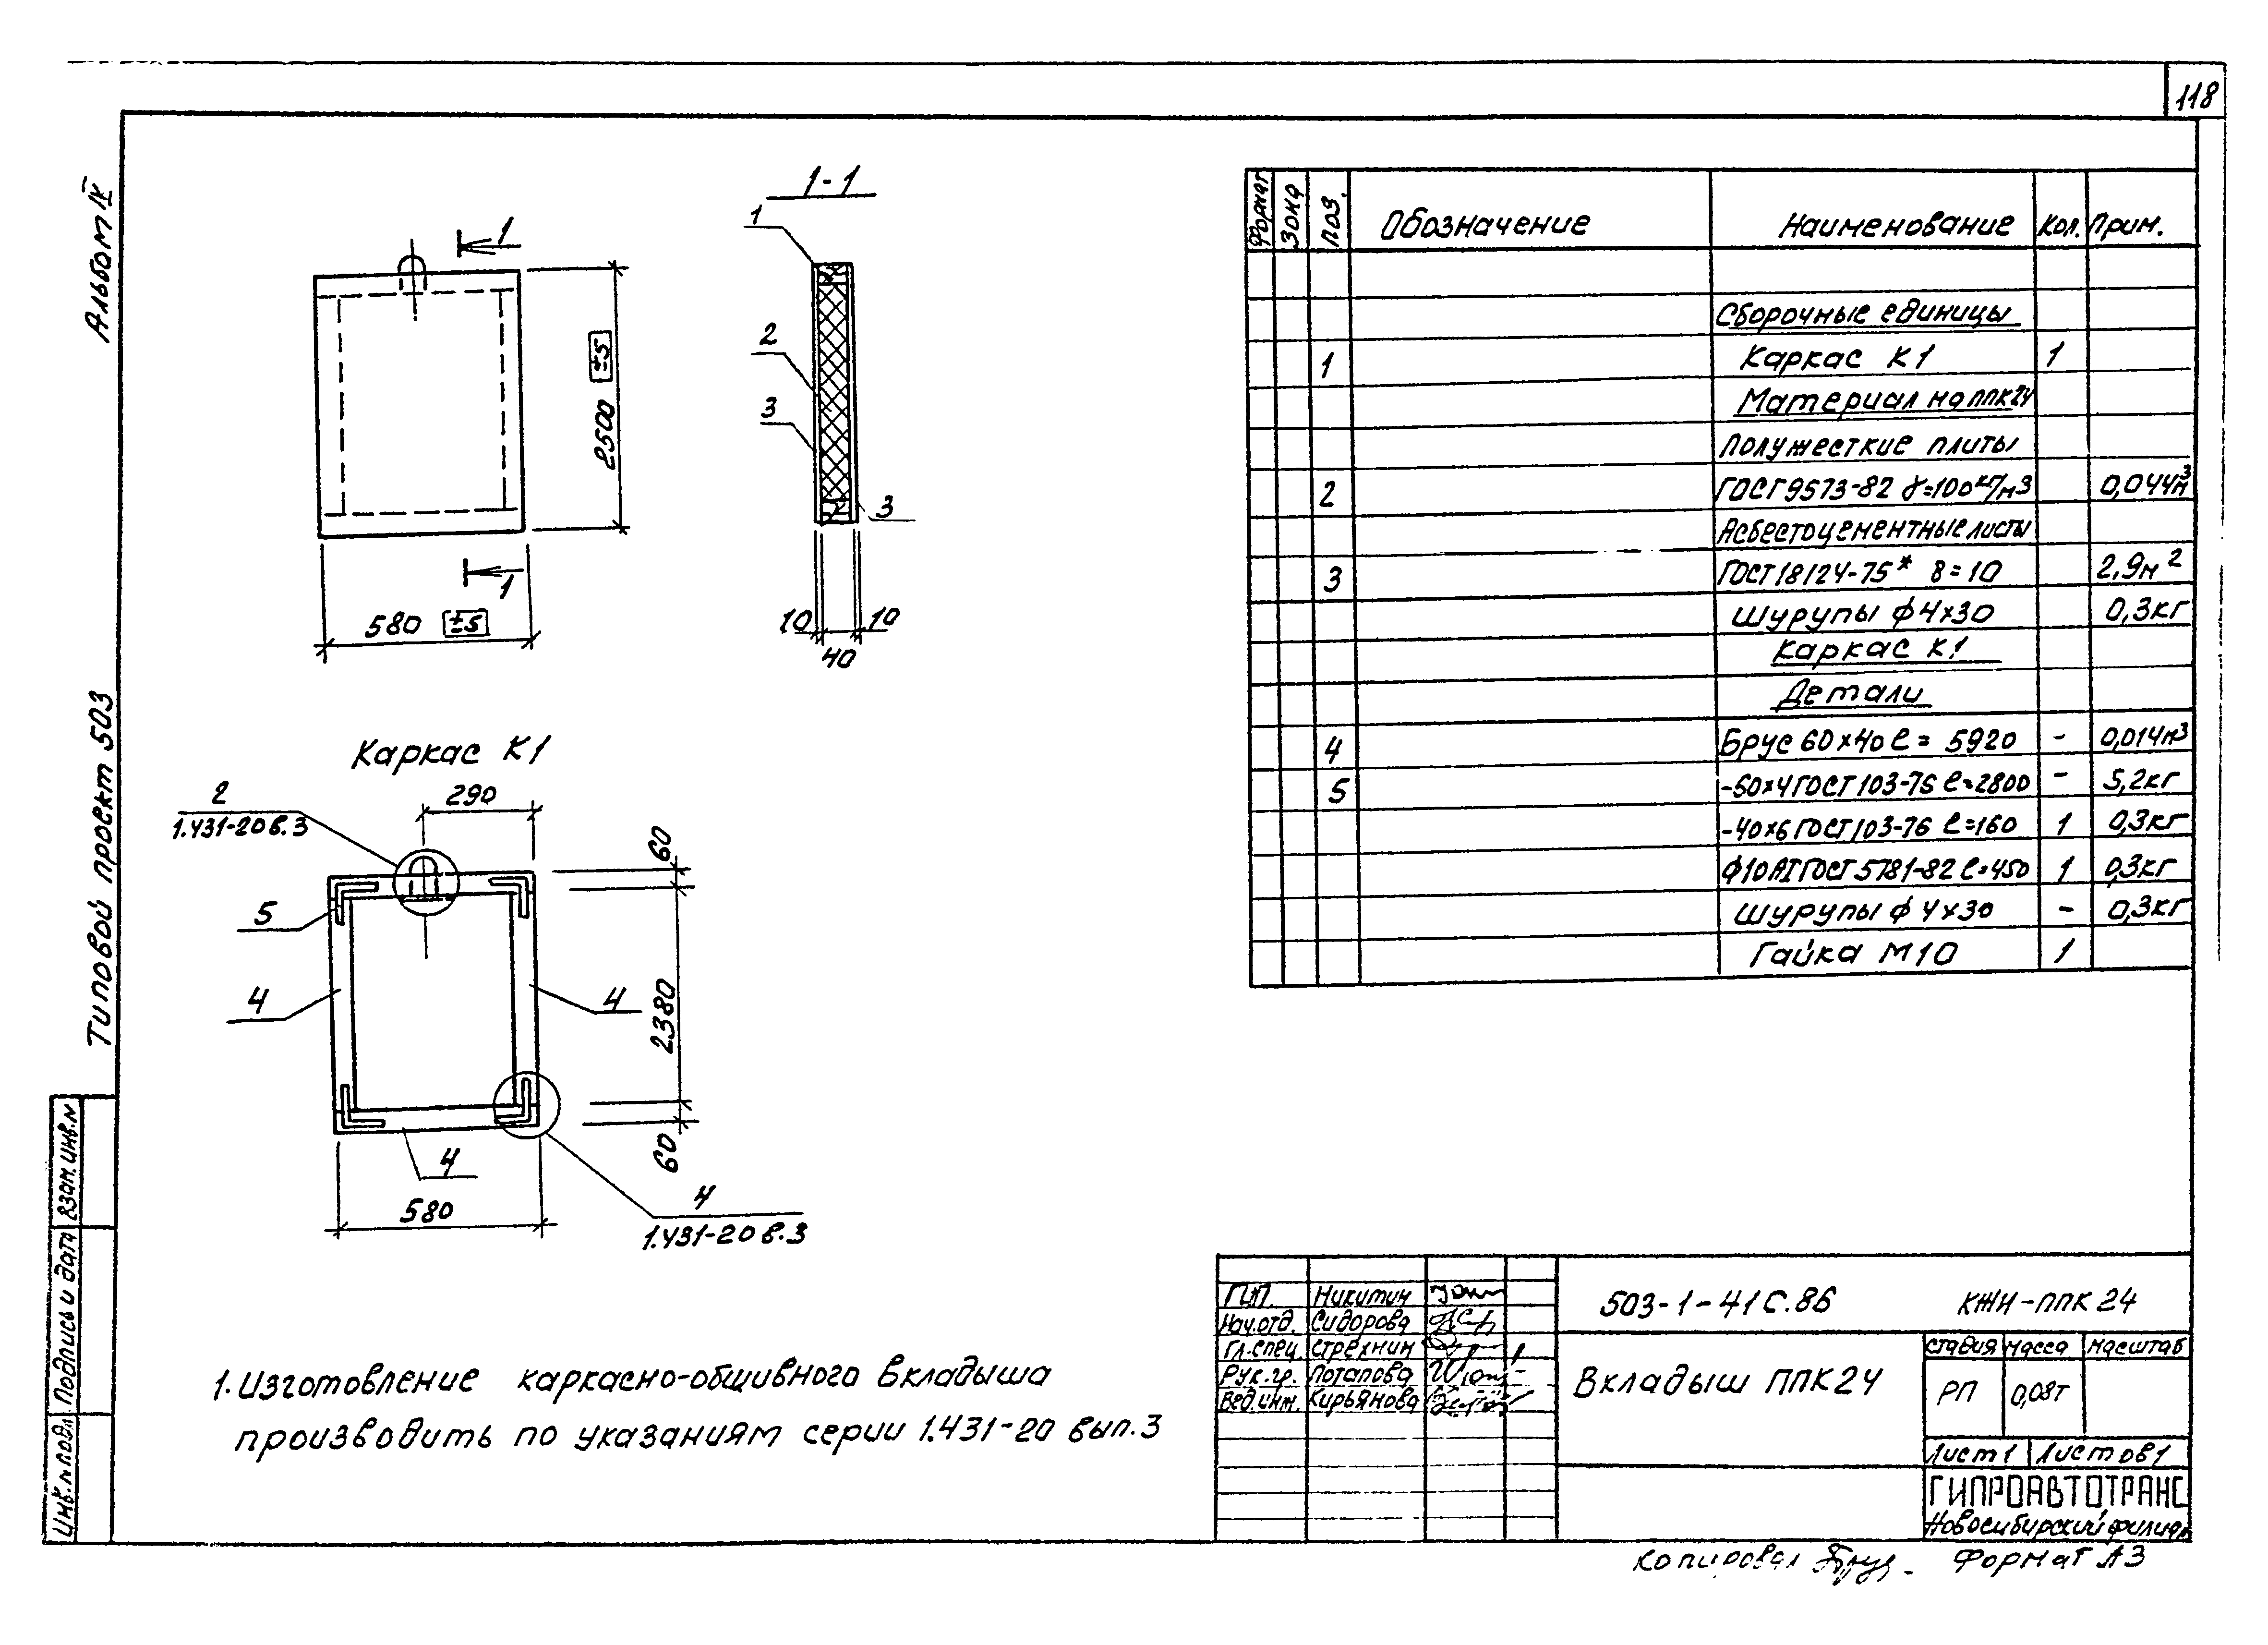 118
Альбом IV
Типовой проект 503
1-1
1
1
1
2
3
3
2500 ±5
580 ±5
10
40
10
Каркас К1
290
2
1.431-20 в.3
5
4
4
4
60
2380
60
580
4
1.431-20 в.3
1. Изготовление каркасно-обшивного вкладыша
производить по указаниям серии 1.431-20 вып.3
Формат Зона Поз. Обозначение Наименование Кол. Прим.
Сборочные единицы
1 Каркас К1 1
Материал на ППК24
Полужесткие плиты
2 ГОСТ 9573-82 γ=100кг/м3 0,044м3
Асбестоцементные листы
3 ГОСТ 18124-75* δ=10 2,9м2
Шурупы ф4×30 0,3кг
Каркас К1
Детали
4 Брус 60×40 ℓ= 5920 - 0,014м3
5 -50×4 ГОСТ 103-76 ℓ=2800 - 5,2кг
-40×6 ГОСТ 103-76 ℓ=160 1 0,3кг
ф10АI ГОСТ 5781-82 ℓ=450 1 0,3кг
Шурупы ф4×30 - 0,3кг
Гайка М10 1
ГИП. Никитин
Нач.отд. Сидорова
Гл.спец. Стрехнин
Рук.гр. Потапова
Вед.инж. Кирьянова
503-1-41С.86 КЖИ-ППК24
Вкладыш ППК24
стадия масса масштаб
РП 0,08т
Лист 1 Листов 1
ГИПРОАВТОТРАНС
Новосибирский филиал
Взам.инв.N
Подпись и дата
Инв.N подл.
Копировал Формат А3